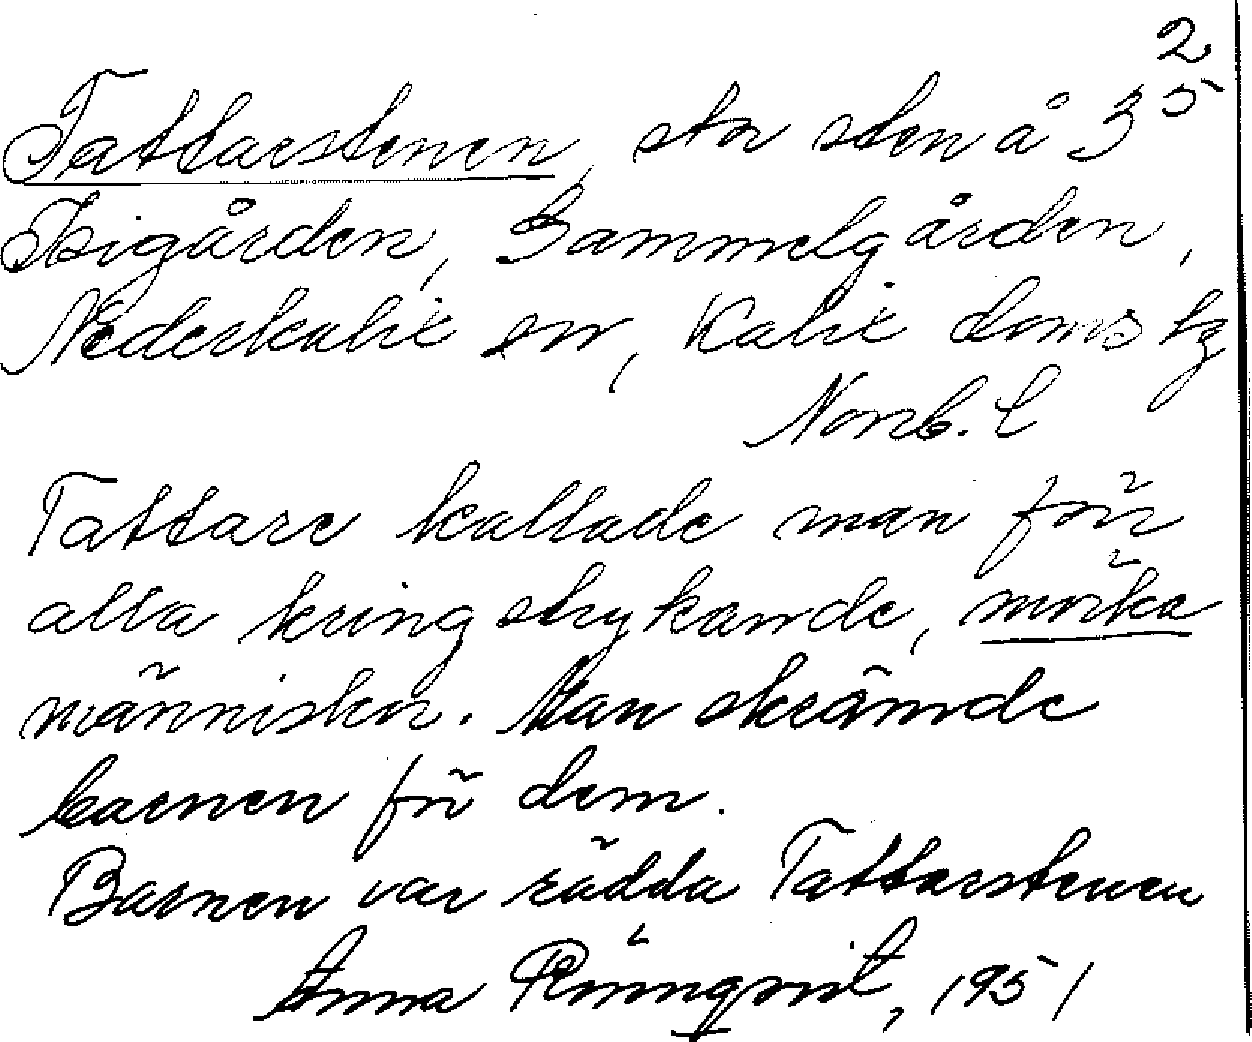 Tattarstenen, stor sten å 3 2/5
Isigården, Gammelgården,
Nederkalix sn, Kalix doms hg
Norrb. l
Tattare kallade man förr
alla kringstrykande, mörka
människor. Man skrämde
barnen för dem.
Barnen var rädda Tattarstenen
Anna Rönnqvist, 1951